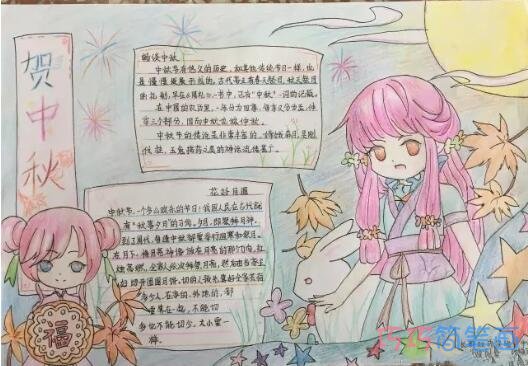 贺中秋
畅谈中秋
中秋节有悠久的历史，和其他传统节日一样，也
是慢慢发展形成的。古代帝王有春天祭日，秋天祭月
的礼制，早在《周礼》一书中，已有"中秋"一词的记载。
在中国的农历里，一年分为四季，每季又分为孟、仲
季三个部分，因而中秋也称仲秋。
中秋节的传说是非常丰富的，嫦娥奔月，吴刚
伐桂，玉兔捣药之类的神话流传甚广。
花好月圆
中秋节，一个多么欢乐的节日！我国人民在古代就
有"秋暮夕月"的习俗。夕月，即祭拜月神。
到了周代，每逢中秋都要举行迎寒和祭月。
在月下，将月亮神像放在月亮的那个方向，红
烛高燃，全家人依次拜祭月亮，然后由当家主
妇切开团圆月饼。切的人预先算好全家共有
多少人，在家的、外地的，都
要算在一起，不能切
多也不能切少，大小要一
样。
福
巧巧简笔画